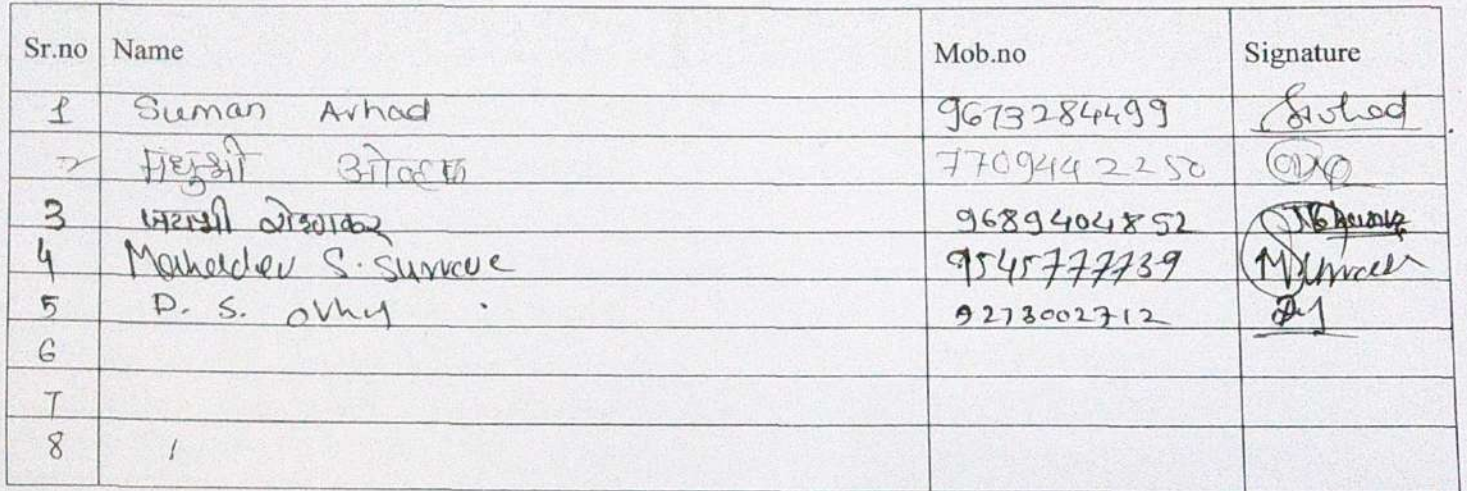 Sr.no Name Mob.no Signature
1 Suman Avhad 9673284499 Avhad
2 मधुश्री ओव्हळ 7709442250
3 जयश्री शेणकर 9689404852
4 Mahadev S. Surve 9545777739
5 D. S. ovhy 9273002712
6
7
8